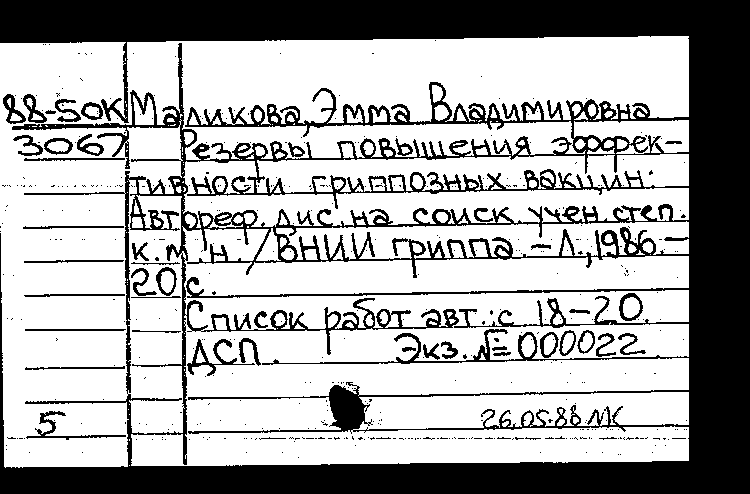 88-50К Маликова, Эмма Владимировна
3067 Резервы повышения эффек-
тивности гриппозных вакцин:
Автореф. дис. на соиск. учен. степ.
к.м.н. / ВНИИ гриппа. – Л., 1986. –
20 с.
Список работ авт.: с 18–20.
ДСП. Экз. № 000022
5 26.05.88 МК